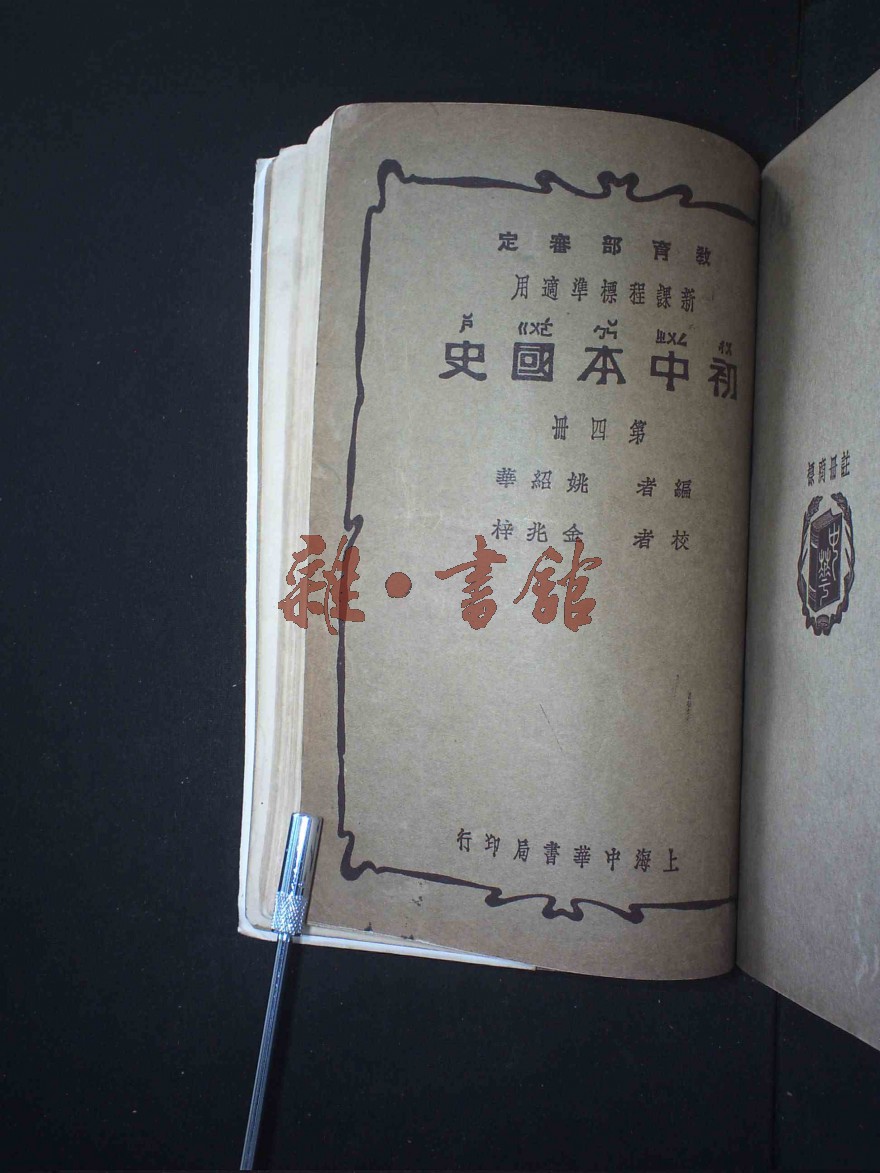 教育部審定
新課程標準適用
初中本國史
第四冊
編者 姚紹華
校者 金兆梓
上海中華書局印行
註冊商標
中華
雜·書館